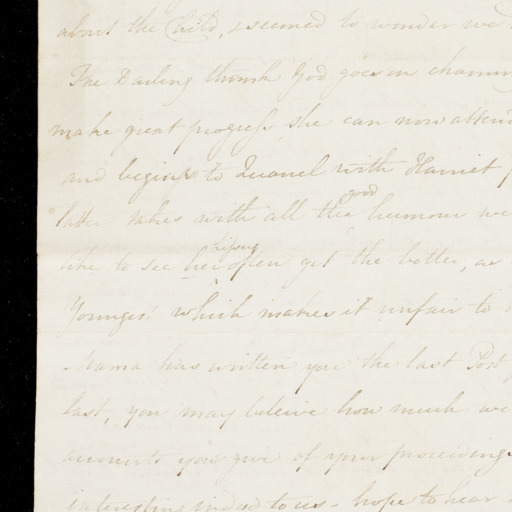 about the Child, & seemed to wonder we
The Darling thank God goes on charming
make great progress, she can now attend
and begins to Quarrel with Harriet
latter takes with all the good humour we
like to see her often get the better, as
Younger which makes it unfair to
Mama has written you the last Post
last, you may beleive how much we
accounts you give of your proceedings
interesting indeed to us - hope to hear